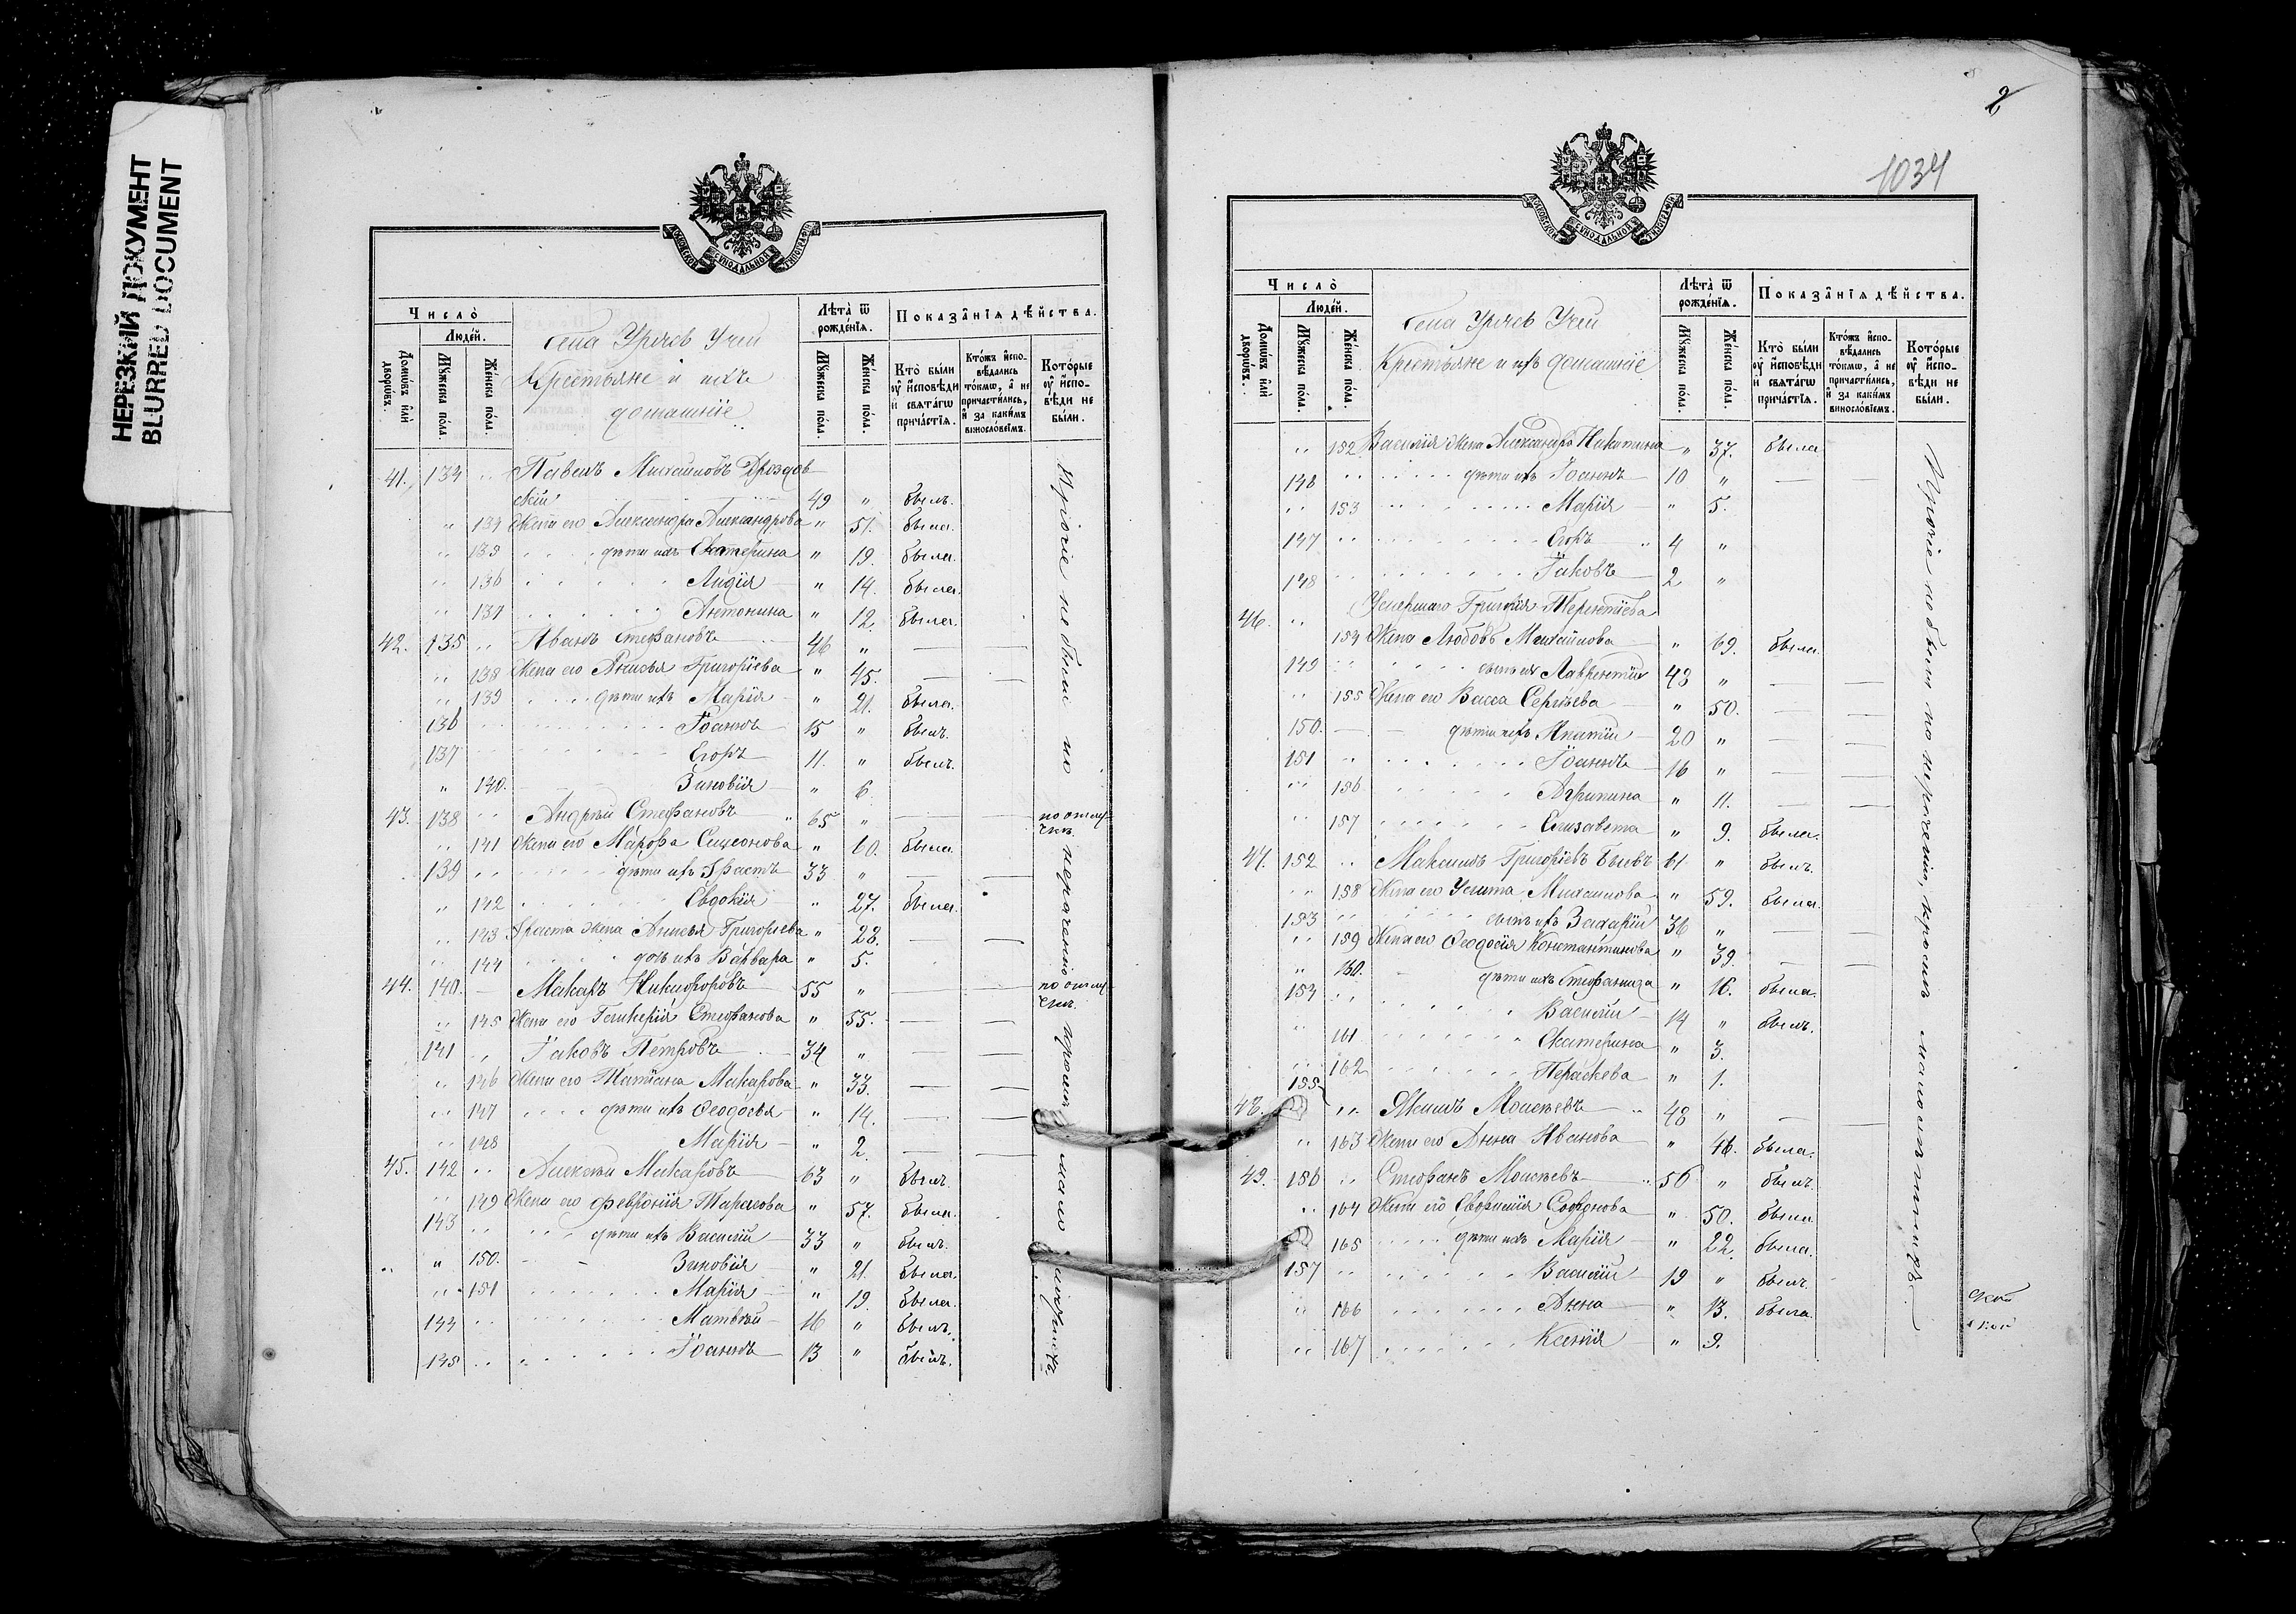 НЕРЕЗКИЙ ДОКУМЕНТ
BLURRED DOCUMENT
МОСКОВСКОЙ СѴНОДАЛЬНОЙ ТИПОГРАФІИ
Число̀
Люде́й.
Домѡ́въ и҆лѝ дворѡ́въ.
Мꙋ́жеска по́ла.
Же́нска по́ла.
Крестьяне и ихъ
домашніе
Лѣта̀ ѿ рожде́нїѧ.
Мꙋ́жеска по́ла.
Же́нска по́ла.
Показа̑нїѧ дѣ́йства.
Кто̀ бы́ли оу҆ и҆сповѣ́ди и҆ свѧта́гѡ прича́стїѧ.
Кто́жъ и҆сповѣ́дались то́кмѡ, а҆ не причасти́лись, и҆ за каки́мъ винослові́емъ.
Кото́рые оу҆ и҆сповѣ́ди не бы́ли.
41. 134 Павелъ Михаиловъ Дроздов-
скій 49 " былъ.
" 134 Жена его Александра Александрова " 51. была.
135 дѣти ихъ Екатерина " 19. была.
136 Лидія " 14. была.
137 Антонина " 12. была.
42. 135 Иванъ Стефановъ 46 "
138 Жена его Анисья Григоріева " 45.
139 дѣти ихъ Марія " 21. была.
136 Іоаннъ 15 " былъ.
137 Егоръ 11. " былъ.
" 140. Зиновія " 6
43. 138 Андрей Стефановъ 65 " по отлуч-
141 Жена его Марфа Симеонова " 60. была
139 дѣти ихъ Эрастъ 33 "
" 142 Евдокія " 27. была.
143 Эраста жена Анисья Григорьева " 28.
144 дочь ихъ Варвара " 5.
44. 140. Макаръ Никифоровъ 55 "
145 Жена его Гликерія Стефанова " 55.
141 Іаковъ Петровъ 34 "
146 Жена его Татіана Макарова " 33.
147 дѣти ихъ Ѳеодосья " 14.
148 Марія " 2.
45. 142 Алексѣй Макаровъ 63 " былъ.
149 Жена его Февронія Тарасова " 57. была.
143 дѣти ихъ Василій 33 " былъ.
" 150. Зиновія " 21. была.
151 Марія " 19. была.
144 Матвѣй 16 " былъ.
145 Іоаннъ 13 " былъ.
Прочіе не были по нераченію, кромѣ малолѣтнихъ.
1034
МОСКОВСКОЙ СѴНОДАЛЬНОЙ ТИПОГРАФІИ
Число̀
Люде́й.
Домѡ́въ и҆лѝ дворѡ́въ.
Мꙋ́жеска по́ла.
Же́нска по́ла.
Крестьяне и ихъ домашніе
Лѣта̀ ѿ рожде́нїѧ.
Мꙋ́жеска по́ла.
Же́нска по́ла.
Показа̑нїѧ дѣ́йства.
Кто̀ бы́ли оу҆ и҆сповѣ́ди и҆ свѧта́гѡ прича́стїѧ.
Кто́жъ и҆сповѣ́дались то́кмѡ, а҆ не причасти́лись, и҆ за каки́мъ винослові́емъ.
Кото́рые оу҆ и҆сповѣ́ди не бы́ли.
152 Василія жена Александра Никитина " 37. была
148 дѣти ихъ Іоаннъ 10 "
153 Марія " 5.
147 Егоръ 4 "
148 Іаковъ 2 "
46. Умершаго Григорія Терентіева
154 Жена Любовь Михаилова " 69. была.
149 сынъ ихъ Лаврентій 48 "
155 Жена его Васса Сергіева " 50.
150. дѣти ихъ Ипатій 20 "
151 Іоаннъ 16 "
156 Агрипина " 11.
157 Елизавета " 9. была.
47. 152 Максимъ Григоріевъ 61 " былъ.
158 Жена его Улита Михаилова " 59. была.
153 сынъ ихъ Захарій 36 "
159 Жена его Ѳеодосія Константинова " 39.
" 160. дѣти ихъ Стефанида " 16. была.
154 Василій 14 " былъ.
161 Екатерина " 3.
162 Параскева " 1.
48. 155 Якимъ Моисѣевъ 48 "
163 Жена его Анна Иванова " 46. была.
49. 156 Стефанъ Моисѣевъ 56 " былъ.
164 Жена его " 50. была
165 дѣти ихъ Марія " 22. была.
157 Василій 19 " былъ.
166 Анна " 13. была.
167 Ксенія " 9.
Прочіе не были по нераченію, кромѣ малолѣтнихъ.